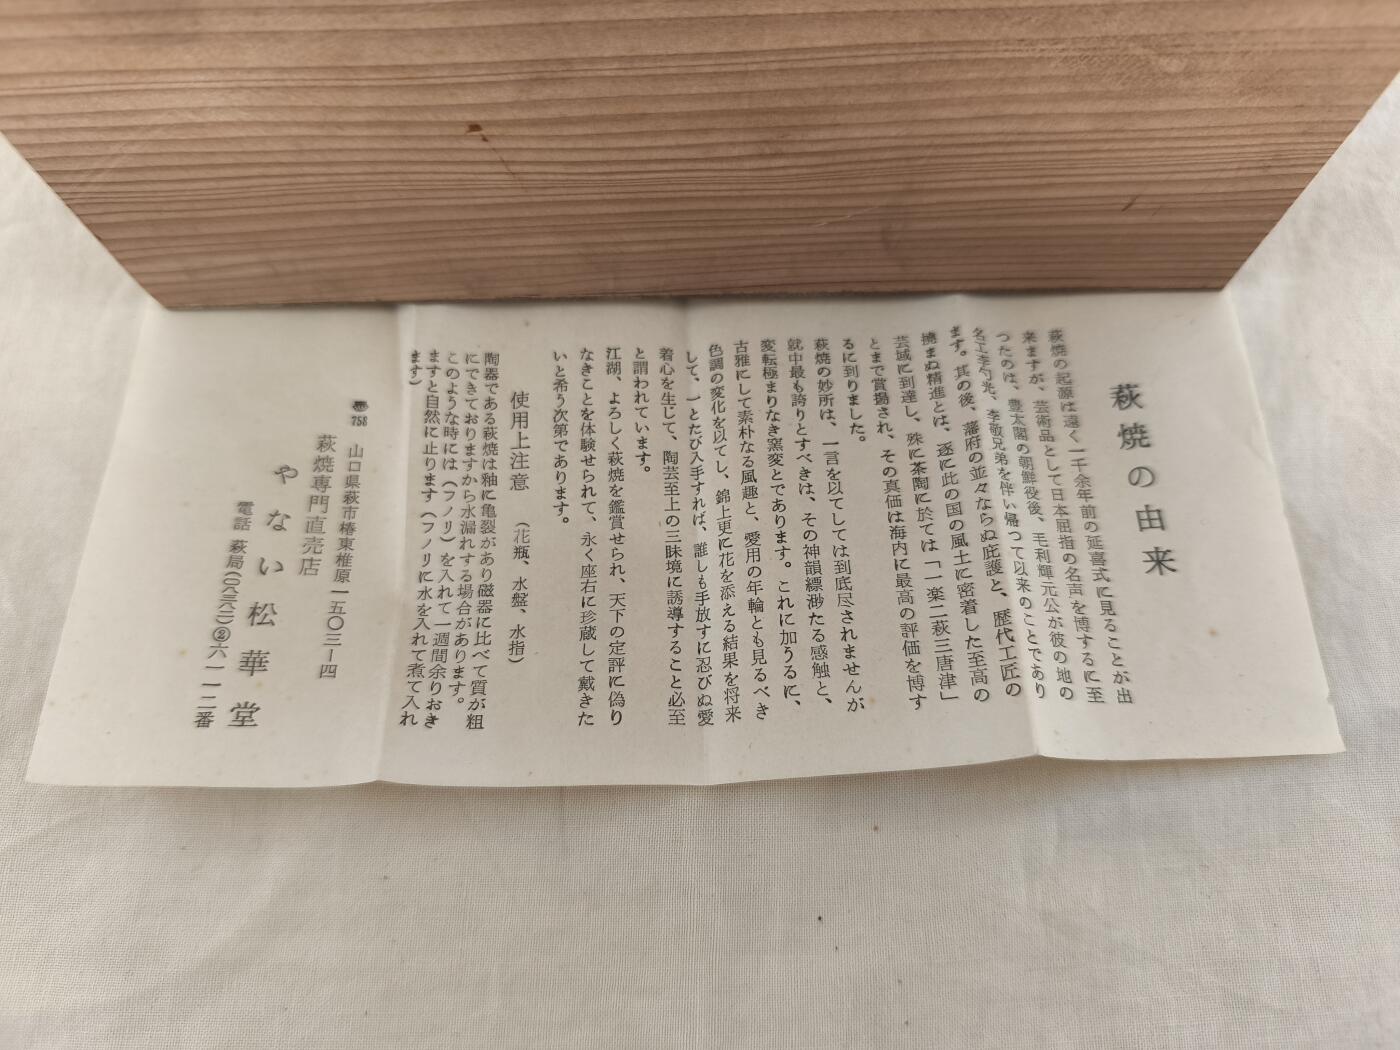 萩焼の由来
萩焼の起源は遠く一千余年前の延喜式に見ることが出
来ますが、芸術品として日本屈指の名声を博するに至
つたのは、豊太閤の朝鮮役後、毛利輝元公が彼の地の
名工李勺光、李敬兄弟を伴い帰つて以来のことであり
ます。其の後、藩府の並々ならぬ庇護と、歴代工匠の
撓まぬ精進とは、逐に此の国の風土に密着した至高の
芸域に到達し、殊に茶陶に於ては「一楽二萩三唐津」
とまで賞揚され、その真価は海内に最高の評価を博す
るに到りました。
萩焼の妙所は、一言を以てしては到底尽されませんが
就中最も誇りとすべきは、その神韻縹渺たる感触と、
変転極まりなき窯変とであります。これに加うるに、
古雅にして素朴なる風趣と、愛用の年輪とも見るべき
色調の変化を以てし、錦上更に花を添える結果を将来
して、一とたび入手すれば、誰しも手放すに忍びぬ愛
着心を生じて、陶芸至上の三昧境に誘導すること必至
と謂われています。
江湖、よろしく萩焼を鑑賞せられ、天下の定評に偽り
なきことを体験せられて、永く座右に珍蔵して戴きた
いと希う次第であります。
使用上注意 (花瓶、水盤、水指)
陶器である萩焼は釉に亀裂があり磁器に比べて質が粗
にできておりますから水漏れする場合があります。
このような時には(フノリ)を入れて一週間余りおき
ますと自然に止ります(フノリに水を入れて煮て入れ
ます)
758 山口県萩市椿東椎原一五〇三ー四
萩焼専門直売店
やない松華堂
電話 萩局(〇八三八二)②六一一二番